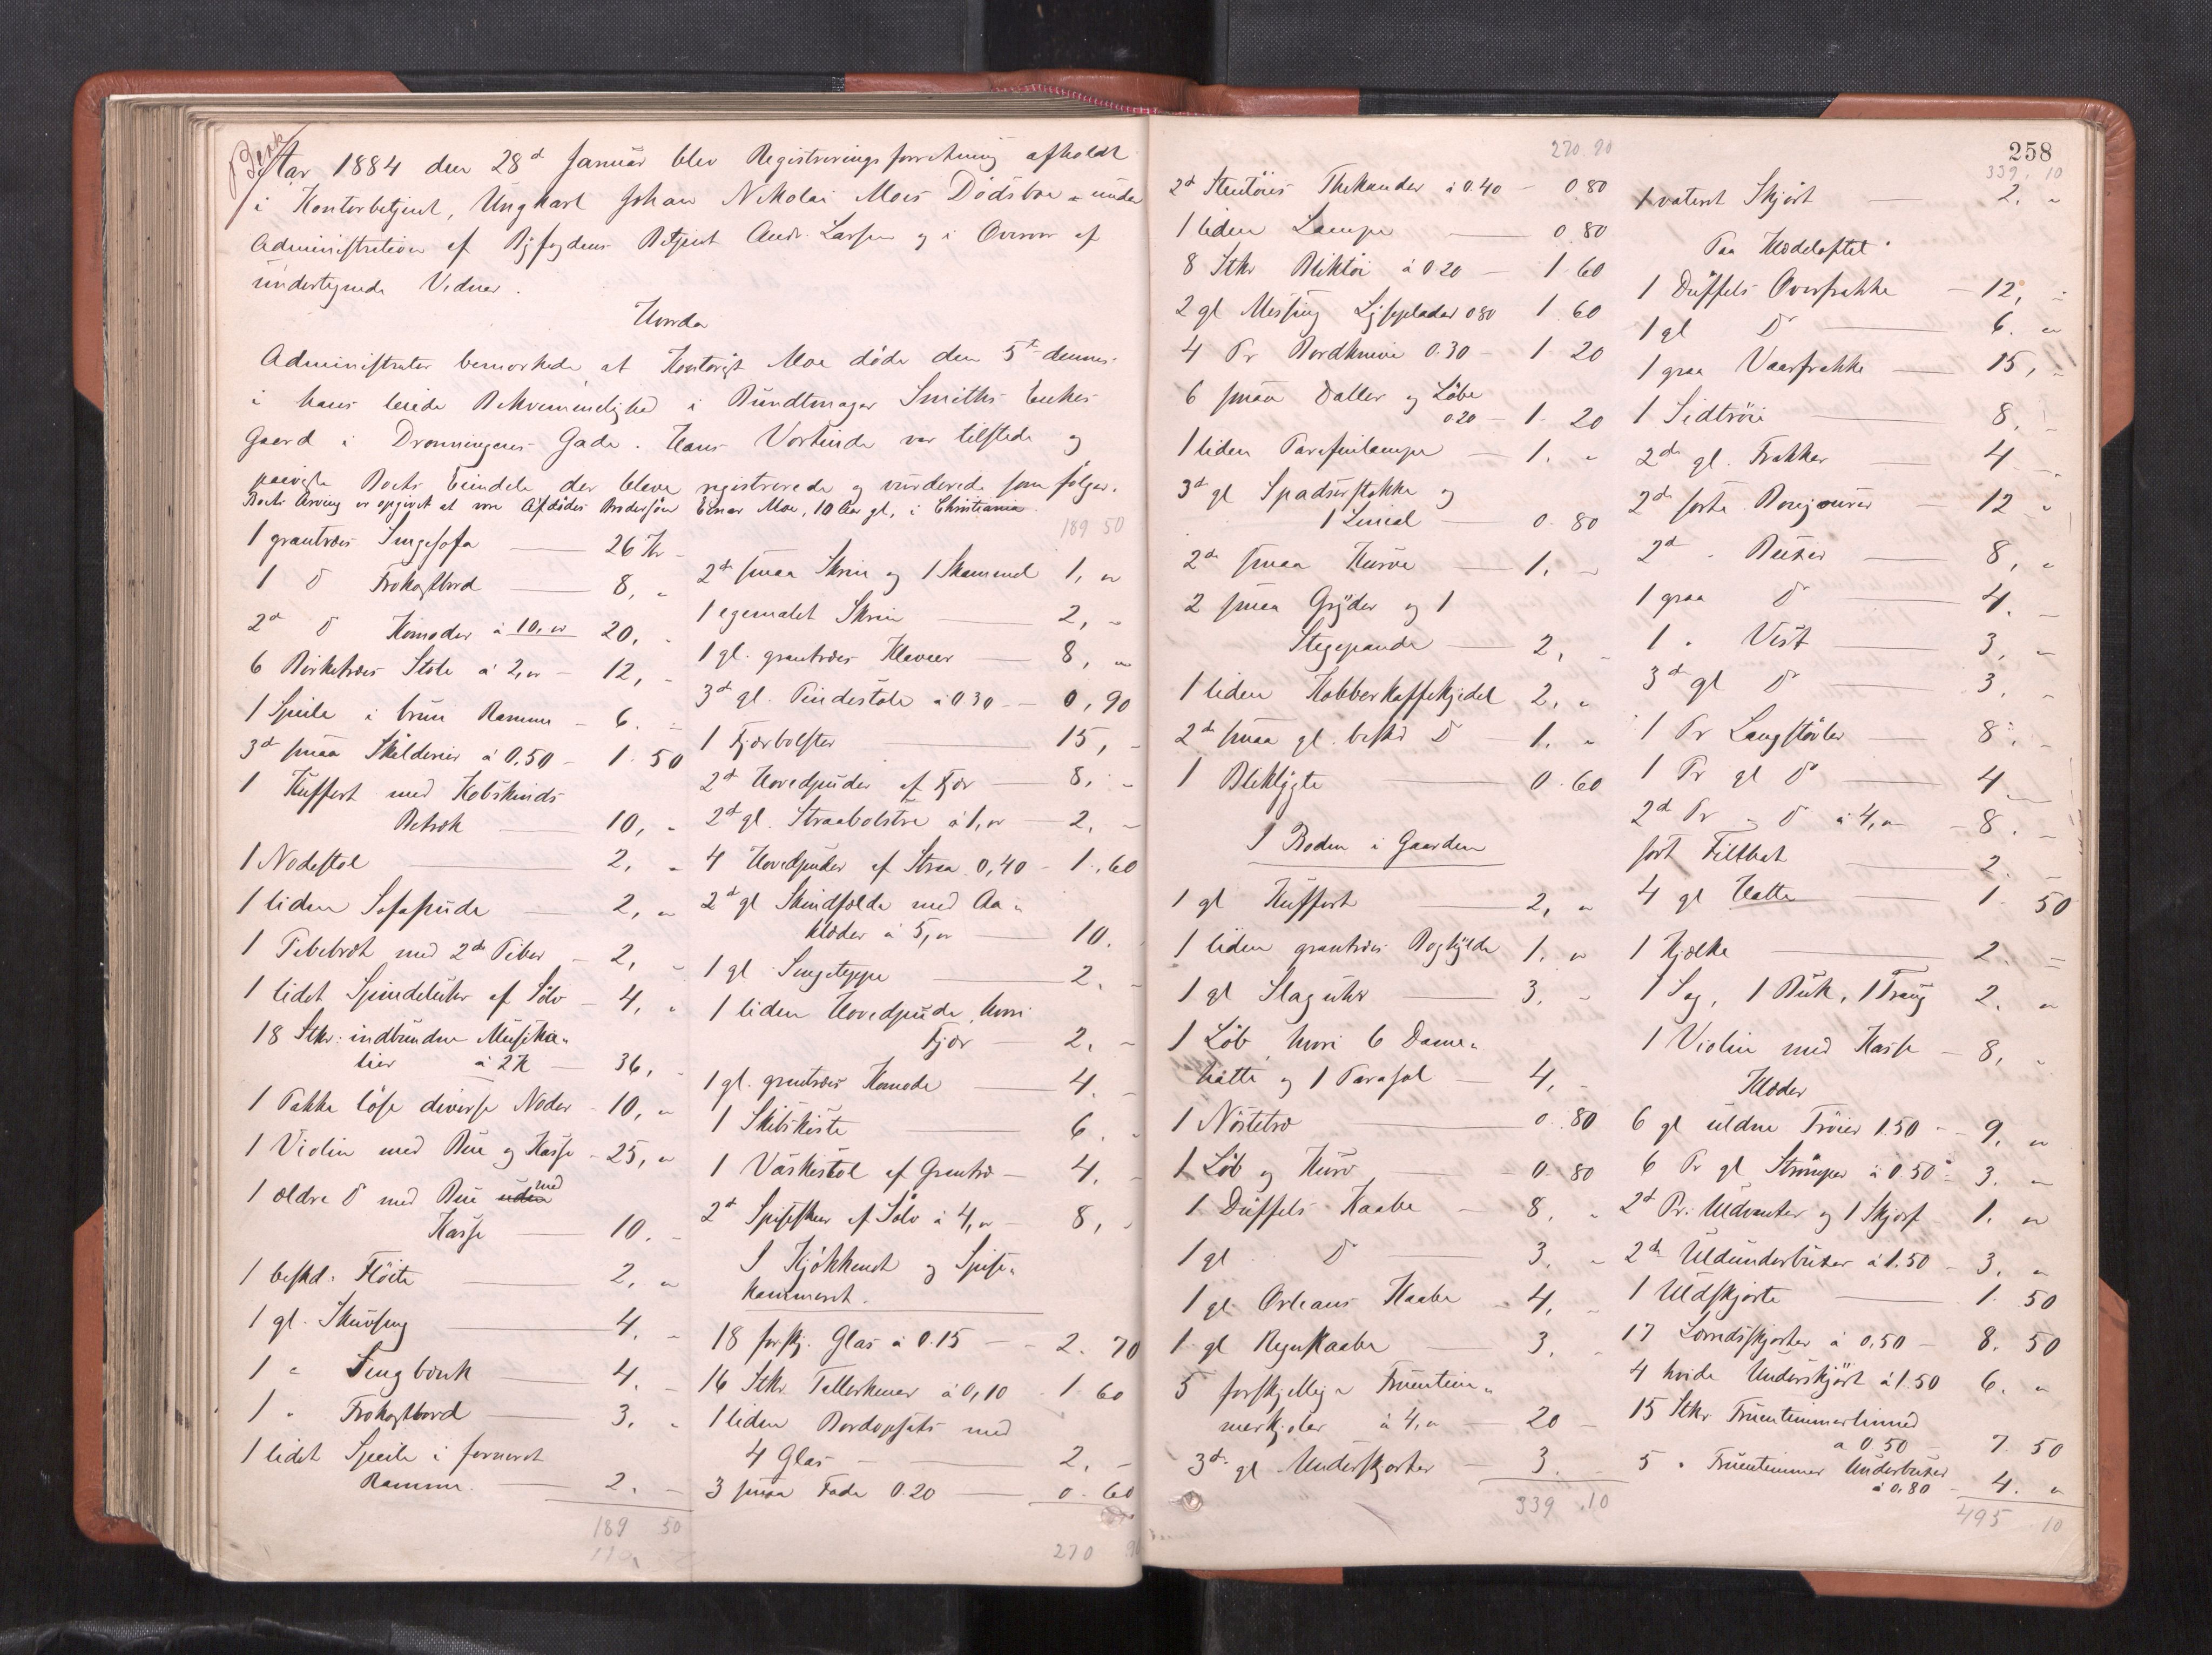 Aar 1884 den 28d Januar blev Registreringsforretning afholdt
i Kontorbetjent, Ungkarl Johan Nikolai Moes Dödsbo under
Administration af Byfogdens Betjent Andr. Larsen og i Overvær af
undertegnede Vidner.
Hvorda
Administrator bemærkede, at Kontorist Moe döde den 5te dennes
i hans leiede Bekvemmelighed i Bundtmager Smiths Enkes
Gaard i Dronningens Gade. Hans Værtinde var tilstede og
paaviste Boets Eiendele der bleve registrerede og vurderede som følger.
Boets Arving er opgivet at være Afdödes Brodersön Einar Moe, 10 Aar gl, i Christiania.
1 grantræes Sengesofa 26 Kr
1 do Frokostbord 8, "
2d do Komoder à 10, " 20, "
6 Birketræes Stole à 2, " 12, "
1 Speile i brun Ramme 6. "
3d smaa Skilderier à 0,50 1. 50
1 Kuffert med Kobskinds
Betræk 10, "
1 Nodestol 2, "
1 liden Sofapude 2, "
1 Pibebræt med 2de Piber 2, "
1 lidet Spindeluhr af Sölv 4, "
18 Stkr. indbundne Musika"
lier à 2 K 36, "
1 Pakke löse diverse Noder 10, "
1 Violin med Bue og Kasse 25, "
1 ældre do med Bue uden med
Kasse 10. "
1 beskd: Flöite 2, "
1 gl. Skuvseng 4. "
1 " Sengbænk 4. "
1 " Frokostbord 3. "
1 lidet Speile i forneret
Ramme. 2. "
189 50
189 50
2d smaa Skrin og 1 Skammel 1, "
1 egemalet Skrin 2, "
1 gl. grantræes Klaveer 8, "
3d gl. Pindestole à 0.30 0,90
1 Fjærbolster 15, "
2d Hovedpuder af Fjær 8, "
2d gl. Straabolstre à 1, " 2, "
4 Hovedpuder af Straa 0,40 1.,60
2d gl Skindfælde med Aa"
klæder à 5, " 10.
1 gl Sengeteppe 2. "
1 liden Hovedpude, hvori
Fjær 2. "
1 gl. grantræes Komode 4. "
1 Skibskiste 6. "
1 Vaskestol af Grantræ 4. "
2d Spiseskeer af Sölv à 4, " 8, "
I Kjökkenet og Spise"
kammeret.
18 forskj. Glas à 0.15 2. 70
16 Stkr. Tallerkener à 0,10 1. 60
1 liden Bordopsats med
4 Glas 2. "
3 smaa Fade 0.20 0. 60
270
270 90
2d Stentöies Thekander à 0.40 0.80
1 liden Lampe 0 80
8 Stkr Bliktöi à 0 20 1. 60
2 gl Messing Lyseplader 0 80 1. 60
4 Pr Bordknive 0.30 1. 20
6 smaa Daller og Löbe
0 20 1. 20
1 liden Parafinlampe 1. "
3d gl Spadserstokke og
1 Lineal 0. 80
2de smaa Kurve 1. "
2 smaa Gryder og 1
Stegepande 2, "
1 liden Kobberkaffekjedel 2, "
2de smaa gl. beskd do 1. "
1 Bliklygte 0. 60
I Boden i Gaarden
1 gl Kuffert 2, "
1 liden grantræes Boghylde 1. "
1 gl Slaguhr 3. "
1 Löb, hvori 6 Dame"
hatte og 1 Parasol 4, "
1 Nöstetræ 0. 80
1 Löb og Kurv 0. 80
1 Düffels Kaabe 8. "
1 gl do 3. "
1 gl. Orleans Kaabe 4, "
1 gl Regnkaabe 3. "
5 forskjellige Fruentim"
merkjoler à 4, " 20 "
3de gl Underskjorter 3. "
339 .10
258
339. 10
1 vateret Skjört 2. "
Paa Klædeloftet
1 Düffels Overfrakke 12, "
1 gl do 6. "
1 graa Vaarfrakke 15, "
1 Sidtröie 8. "
2de gl. Frakker 4 "
2de sorte Bonjourer 12 "
2d " Buxer 8, "
1 graa do 4. "
1 " Vest 3, "
3de gl do 3. "
1 Pr Langstövler 8. "
1 Pr gl do 4
2d Pr " do à 4, " 8. "
sort Filthat 2. "
4 gl Hatte 1. 50
1 Kjælke 2. "
1 Sag, 1 Buk, 1 Traug 2. "
1 Violin med Kasse 8, "
Klæder
6 gl uldne Tröier 1.50 9. "
6 Pr gl Strömper à 0.50 3. "
2d Pr. Uldvanter og 1 Skjærf 1. "
2de Uldunderbuxer à 1.50 3. "
1 Uldskjorte 1. 50
17 Lærredsskjorter à 0,50 8. 50
4 hvide Underskjört à 1.50 6. "
15 Stkr Fruentimmerlinned
à 0.50 7. 50
5 " Fruentimmer Underbuxer
à 0.80 4. "
495 . 10